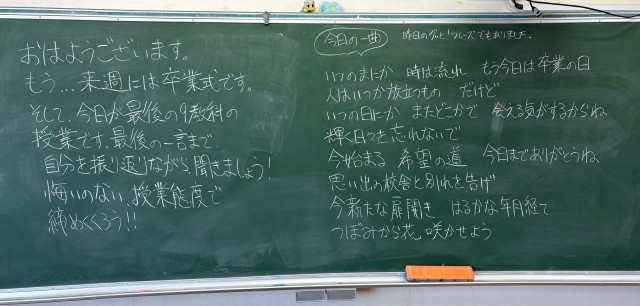 おはようございます。
もう…来週には卒業式です。
そして、今日が最後の9教科の
授業です。最後の一言まで
自分を振り返りながら聞きましょう!
悔いのない授業態度で
締めくくろう!!
今日の一曲
昨日の
でもありました。
いつのまにか 時は流れ もう今日は卒業の日
人はいつか旅立つもの だけど
いつの日にか またどこかで 会える気がするからね
輝く日々を忘れないで
今始まる 希望の道 今日までありがとうね
思い出の校舎と別れを告げ
今新たな扉開き はるかな年月経て
つぼみから花咲かせよう